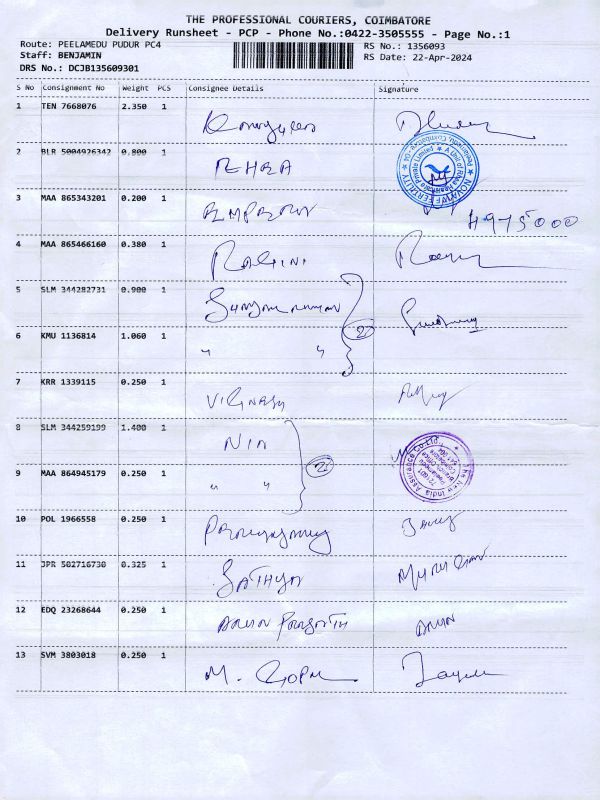 THE PROFESSIONAL COURIERS, COIMBATORE
Delivery Runsheet - PCP - Phone No.:0422-3505555 - Page No.:1
Route: PEELAMEDU PUDUR PC4
RS No.: 1356093
Staff: BENJAMIN
RS Date: 22-Apr-2024
DRS No.: DCJB135609301
S No Consignment No Weight PCS Consignee Details Signature
1 TEN 7668076 2.350 1
2 BLR 5004926342 0.800 1
3 MAA 865343201 0.200 1
4975000
4 MAA 865466160 0.380 1 RAGINI
5 SLM 344282731 0.900 1
6 KMU 1136814 1.060 1 " "
7 KRR 1339115 0.250 1 VIGNESH
8 SLM 344259199 1.400 1 NIA
9 MAA 864945179 0.250 1 " "
10 POL 1966558 0.250 1
11 JPR 502716730 0.325 1 SATHYA MURUGAN
12 EDQ 23268644 0.250 1 ARUN PRASATH ARUN
13 SVM 3803018 0.250 1 M. GOPAL